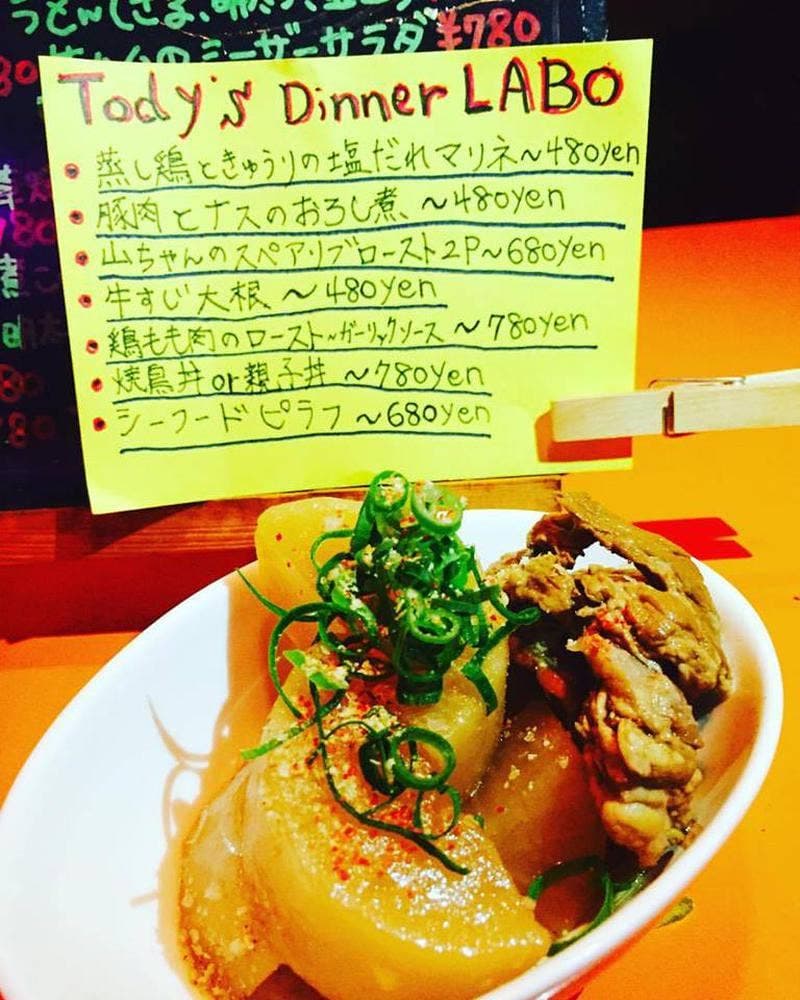 ¥780
Tody's Dinner LABO
• 蒸し鶏ときゅうりの塩だれマリネ~480yen
• 豚肉とナスのおろし煮 ~480yen
• 山ちゃんのスペアリブロースト2P~680yen
• 牛すじ大根 ~480yen
• 鶏もも肉のロースト~ガーリックソース ~780yen
• 焼鳥丼or親子丼 ~780yen
• シーフードピラフ ~680yen